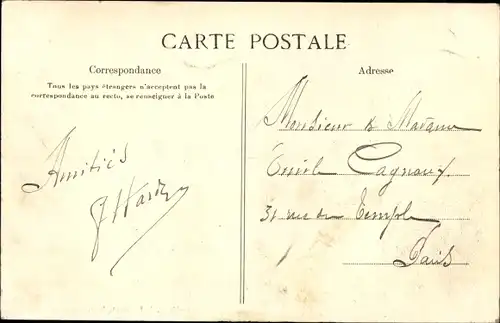 CARTE POSTALE
Correspondance
Tous les pays étrangers n'acceptent pas la
correspondance au recto, se renseigner à la Poste
Adresse
Amitiés
Monsieur & Madame
Emile
31 rue du Temple
Paris